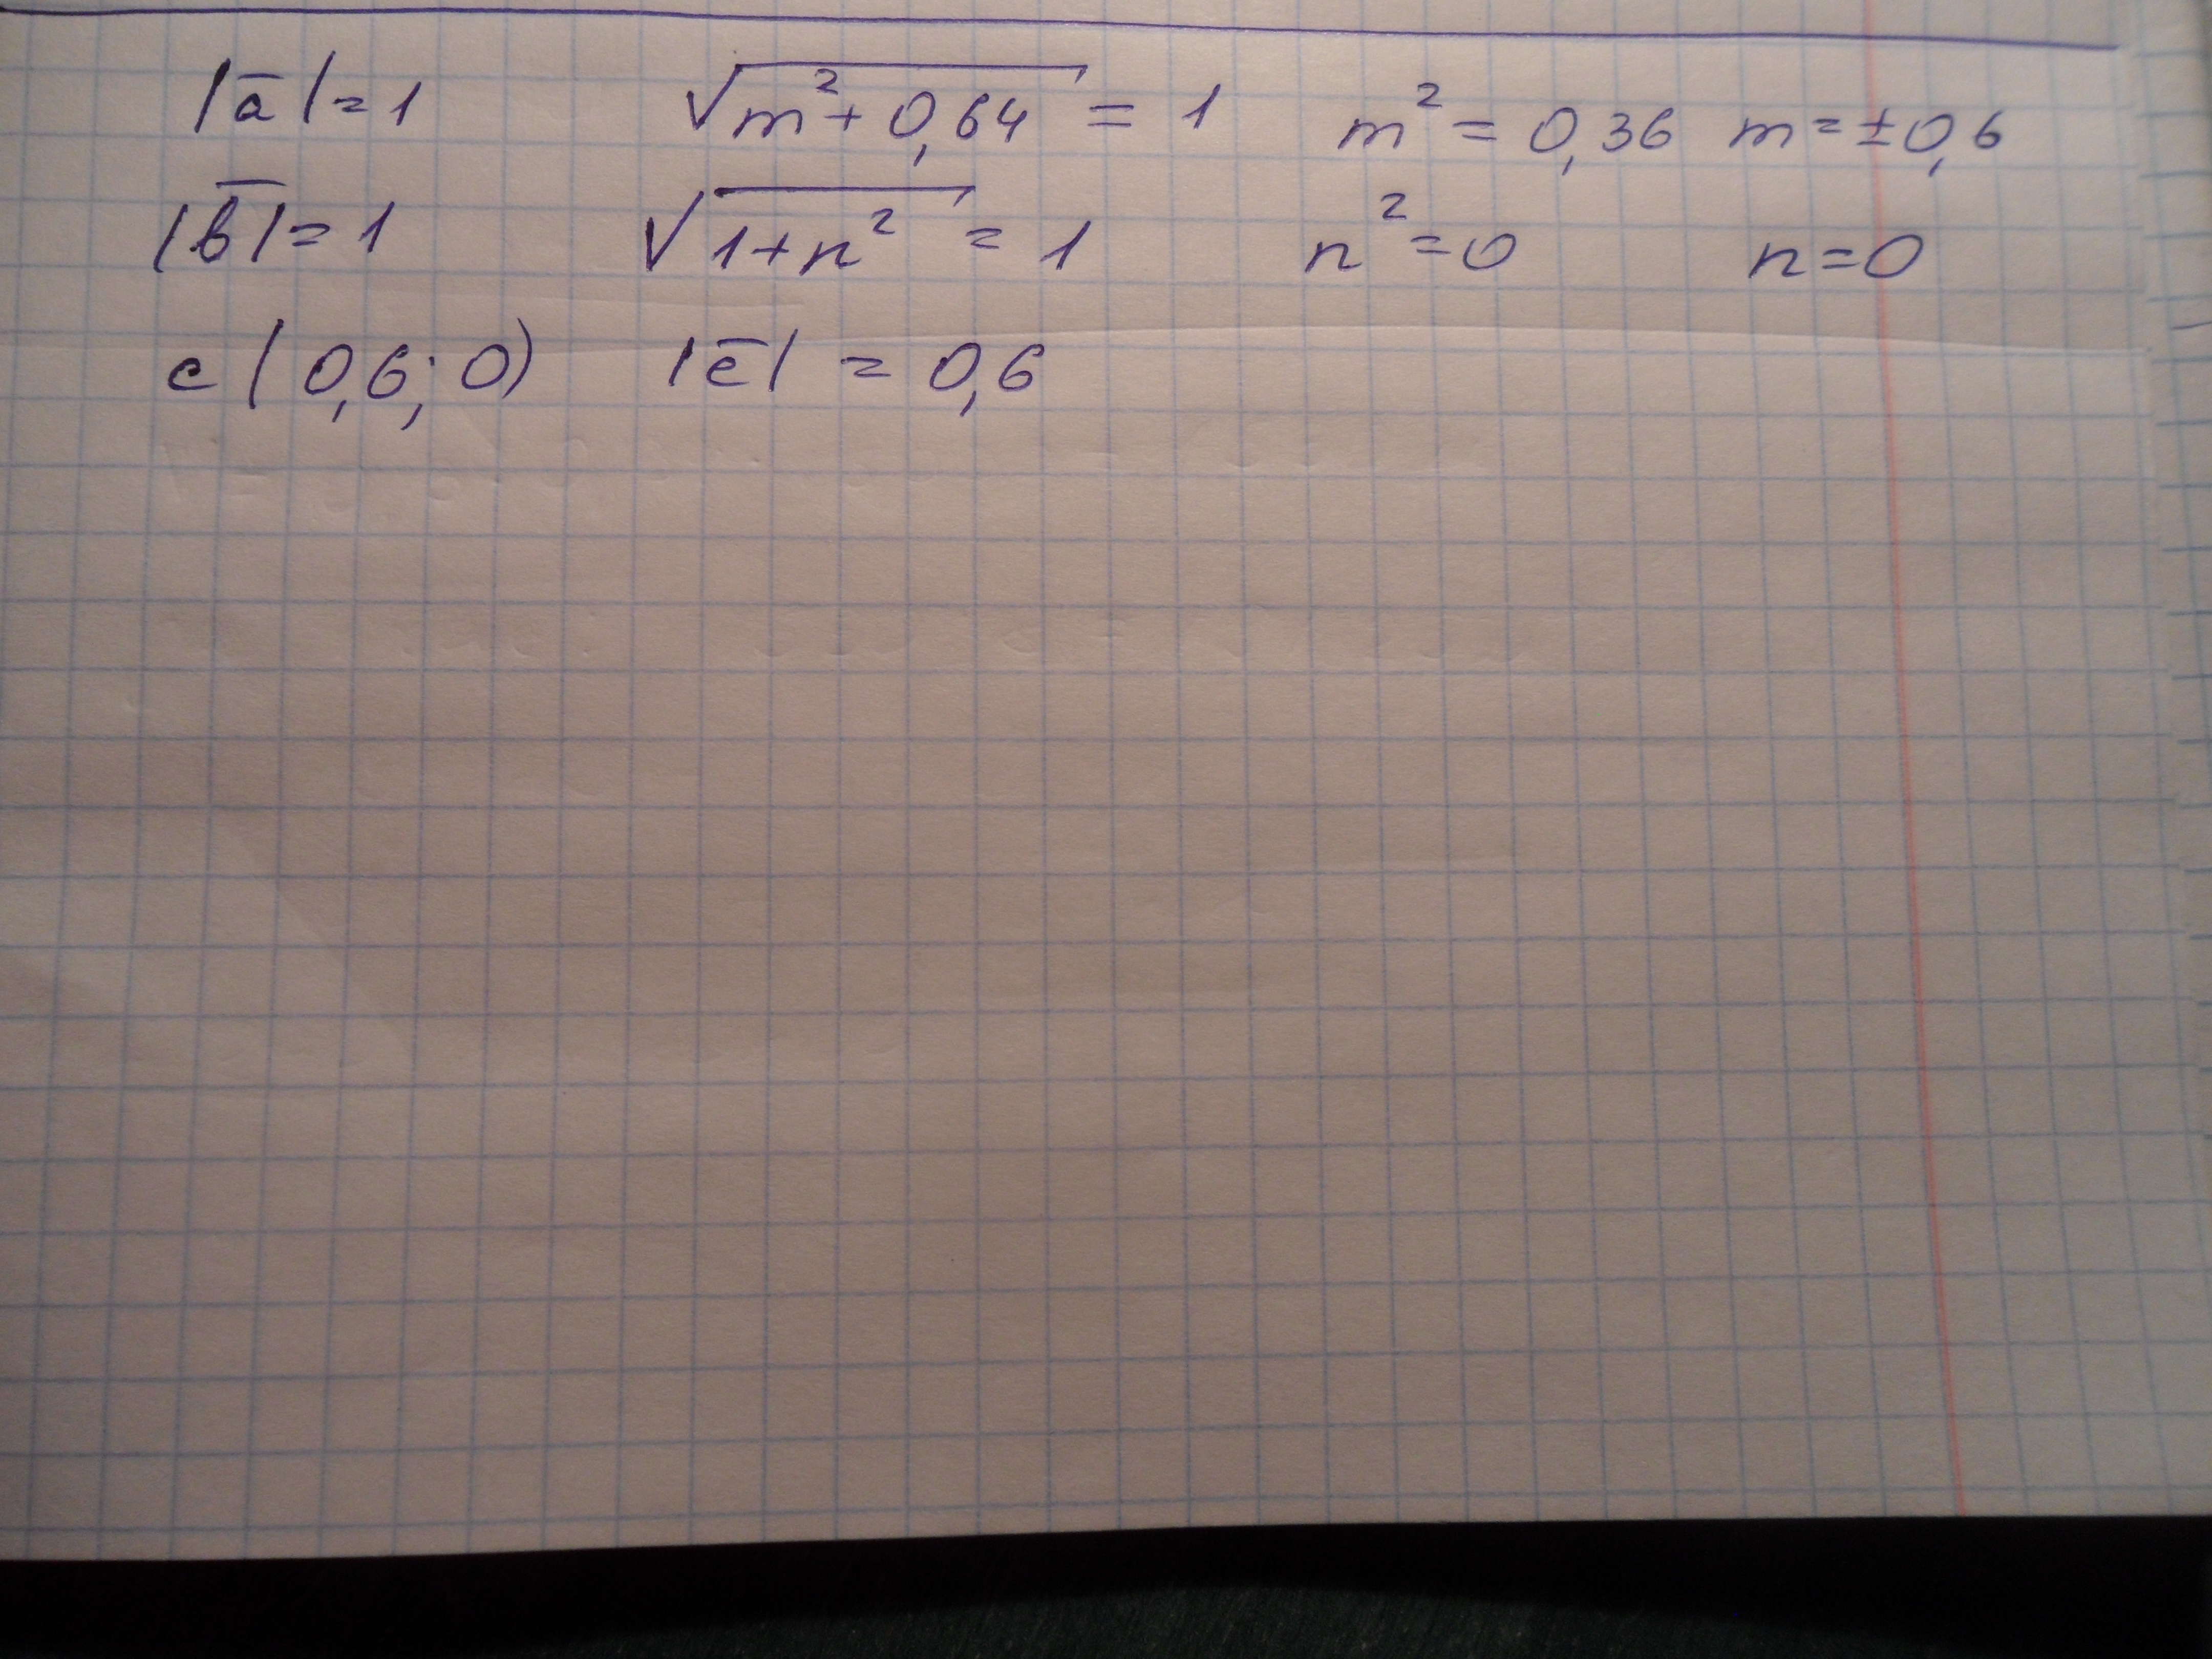 |a̅| = 1 √(m² + 0,64) = 1 m² = 0,36 m = ±0,6
|b̅| = 1 √(1 + n²) = 1 n² = 0 n = 0
c (0,6; 0) |c̅| = 0,6